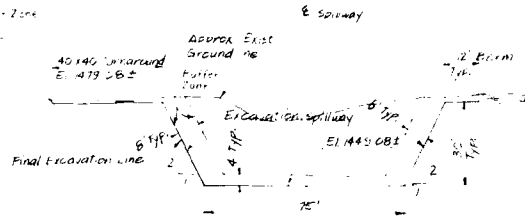 Zone
℄ Spillway
Approx Exist
Ground
40x40 Turnaround
El 1479.08±
Buffer
Zone
12' Berm
Typ.
Excavation spillway
6' Typ.
El. 1449.08±
8' Typ.
4' Typ.
30'
Typ.
Final Excavation Line
2
1
2
1
75'